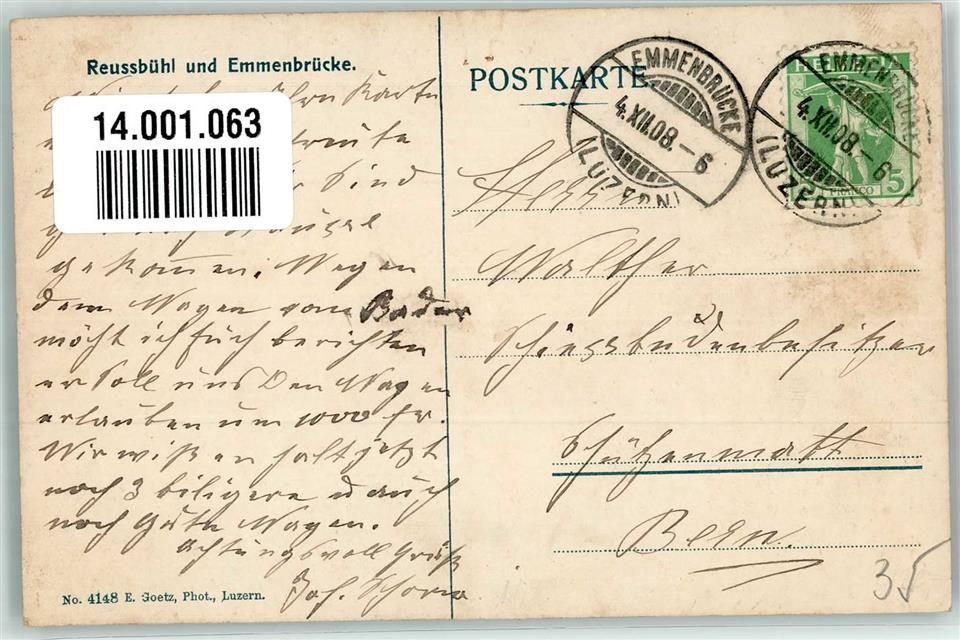 Reussbühl und Emmenbrücke.
Karte
14.001.063
sind
gekommen. Wegen
dem Wagen vom Bader
möcht ich Euch berichten
er soll uns den Wagen
erlauben um 1000 fr.
Wir wißen halt jetzt
noch 3 biligere u auch
noch gute Wagen.
Achtungsvoll Gruß
Joh.
No. 4148 E. Goetz, Phot., Luzern.
POSTKARTE
EMMENBRÜCKE
4.XII.08.-6
(LUZERN)
EMMENBRÜCKE
4.XII.08.-6
(LUZERN)
FRANCO
5
Herrn
Walther
Schiessbudenbesitzer
Schützenmatt
Bern.
35